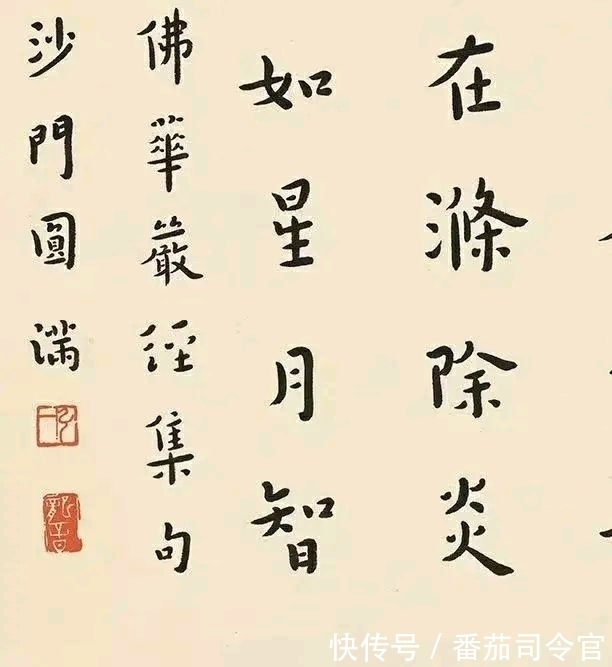 在滌除炎
如星月智
佛華嚴經集句
沙門圓滿
快传号 / 番茄司令官